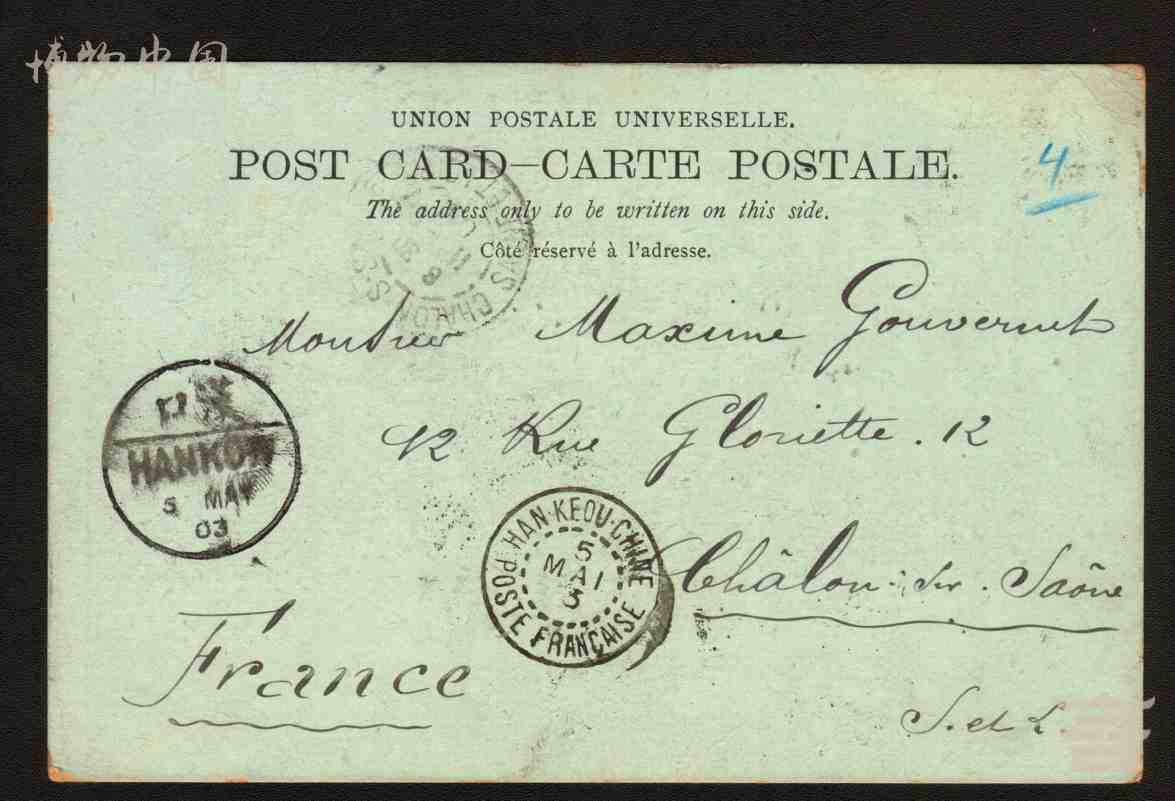 博物中国
UNION POSTALE UNIVERSELLE.
POST CARD—CARTE POSTALE.
4
The address only to be written on this side.
Côté réservé à l'adresse.
CHALON
Monsieur Maxime Gouvernet
12 Rue Gloriette. 12
HANKOW
5 MAY
03
HAN-KEOU-CHINE
5
MAI
3
POSTE FRANÇAISE
Châlon-sur-Saône
France
S. et L.